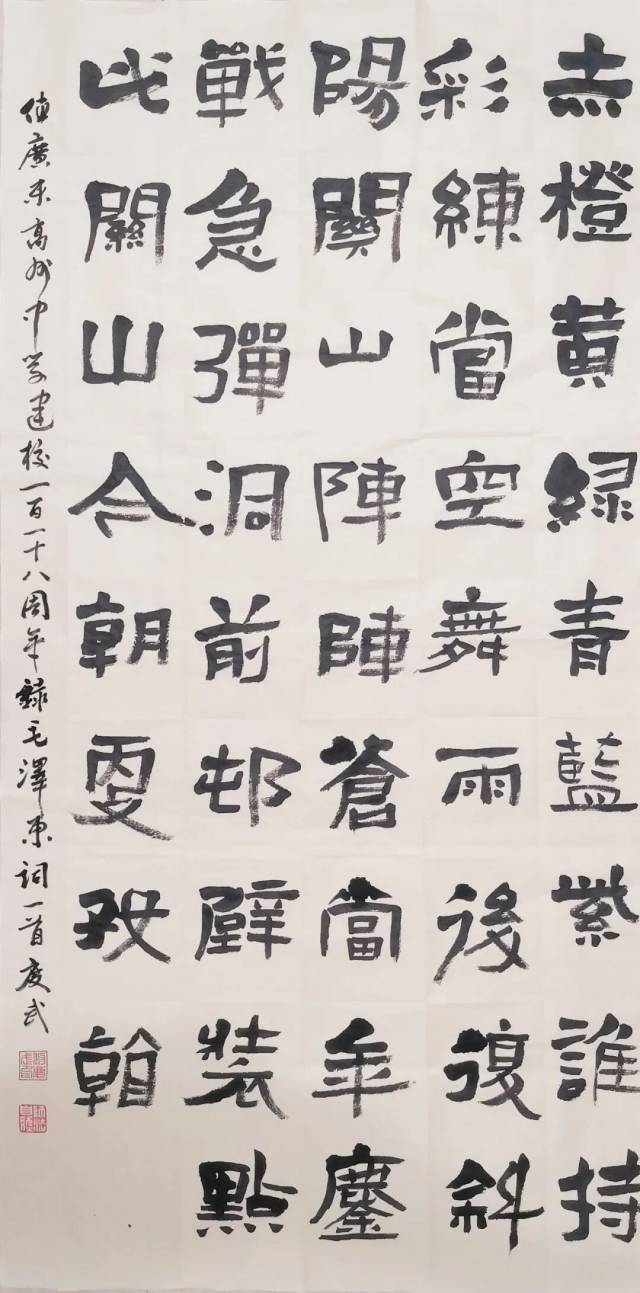 赤橙黄緑青藍紫誰持
彩練當空舞雨後復斜
陽關山陣陣蒼當年鏖
戰急彈洞前邨壁裝點
此關山今朝更好看
值廣東高州中学建校一百一十八周年錄毛澤東詞一首 武